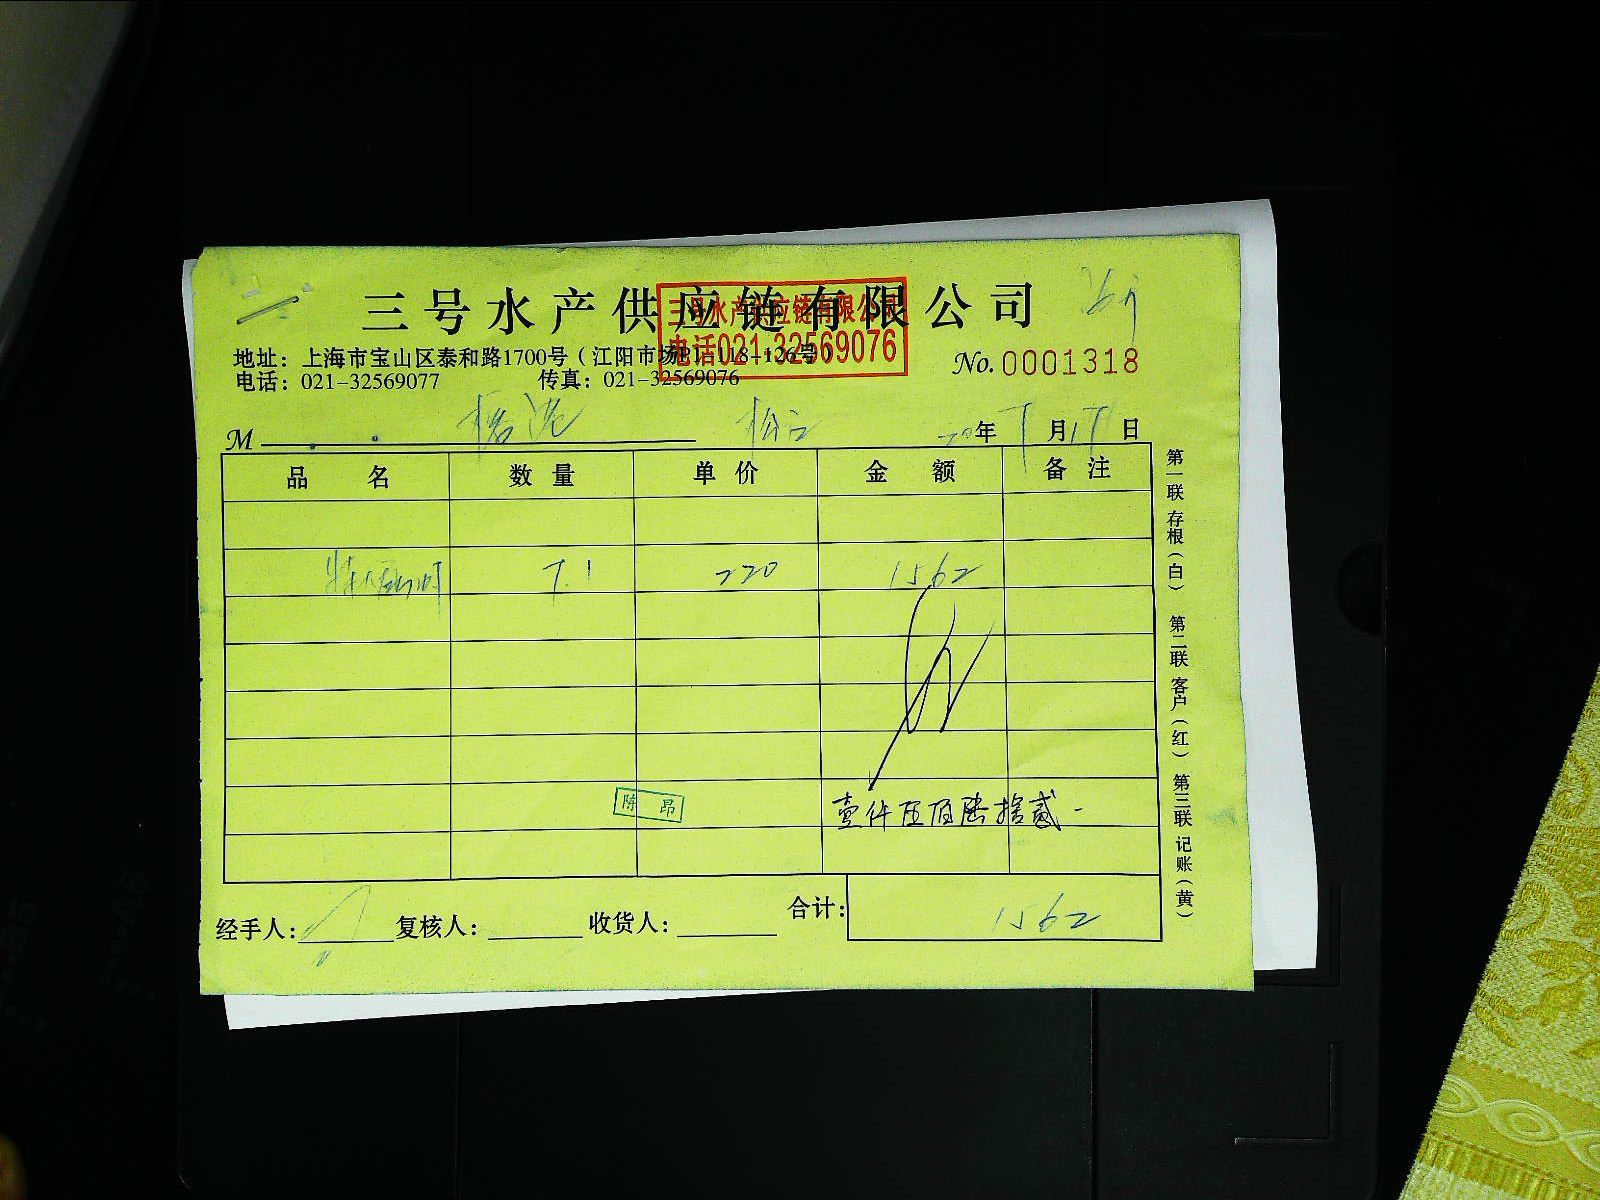 三号水产供应链有限公司
三号水产供应链有限公司
电话021-32569076
地址：上海市宝山区泰和路1700号（江阳市场P1-118-126号）
No.0001318
电话：021-32569077 传真：021-32569076
M 松江 20年 月 日
品名 数量 单价 金额 备注
7.1 220 1562
陈昂
壹仟伍佰陆拾贰
经手人： 复核人： 收货人： 合计： 1562
第一联存根（白） 第二联客户（红） 第三联记账（黄）